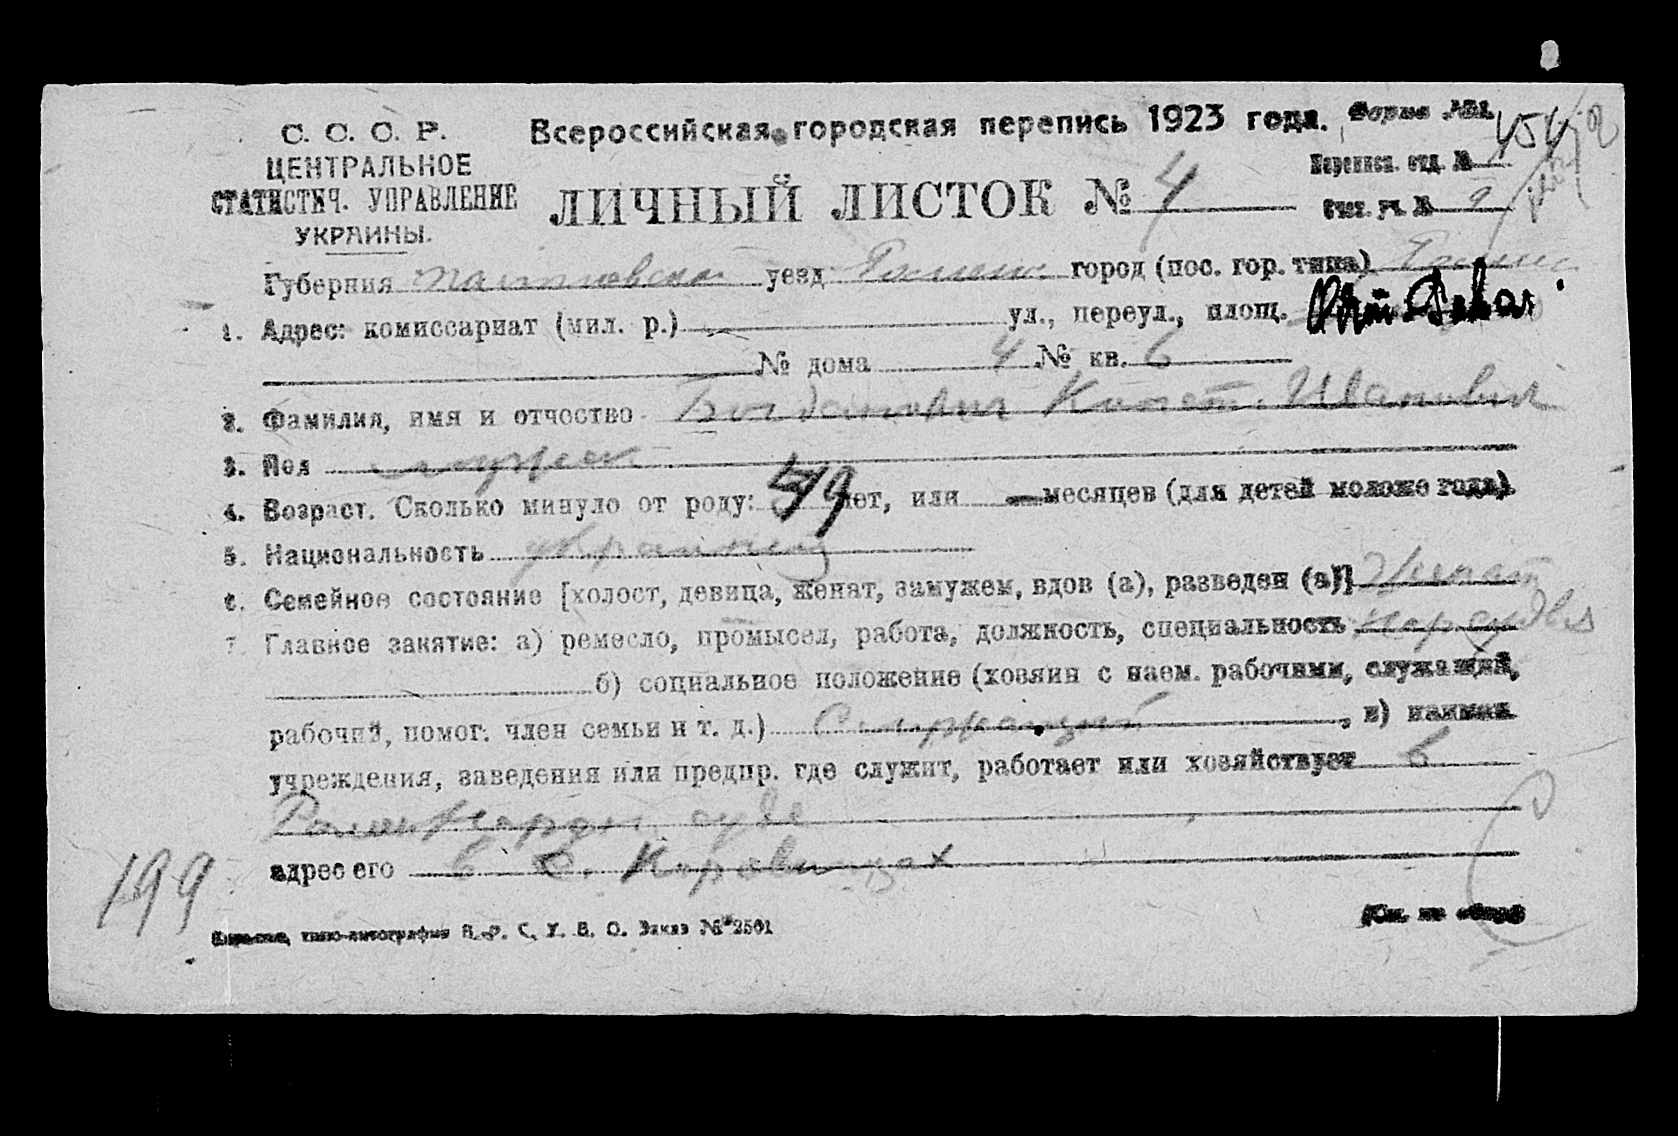 С. С. С. Р.
ЦЕНТРАЛЬНОЕ
СТАТИСТИЧ. УПРАВЛЕНИЕ
УКРАИНЫ.
Всероссийская городская перепись 1923 года.
Форма №1.
Перепися. отд. № 454
ЛИЧНЫЙ ЛИСТОК № 4
Счет. уч. № 9
Губерния Полтовская уезд Ромен город (пос. гор. типа) Ромен
1. Адрес: комиссариат (мил. р.) ул., переул., площ.
№ дома 4 № кв. 6
2. Фамилия, имя и отчество Богданович Иванович
3. Пол мужск
4. Возраст. Сколько минуло от роду: 59 лет, или — месяцев (для детей моложе года).
5. Национальность украинец
6. Семейное состояние [холост, девица, женат, замужем, вдов (а), разведен (а)] Женат
7. Главное занятие: а) ремесло, промысел, работа, должность, специальность
б) социальное положение (хозяин с наем. рабочими, служащий,
рабочий, помог. член семьи и т. д.) Служащий, в) наимен.
учреждения, заведения или предпр. где служит, работает или хозяйствует в
Ромен Народн суде
адрес его в с. Коровинцах
199
типо-литография Н. Р. С. У. В. О. Заказ № 2501
(См. на обор)